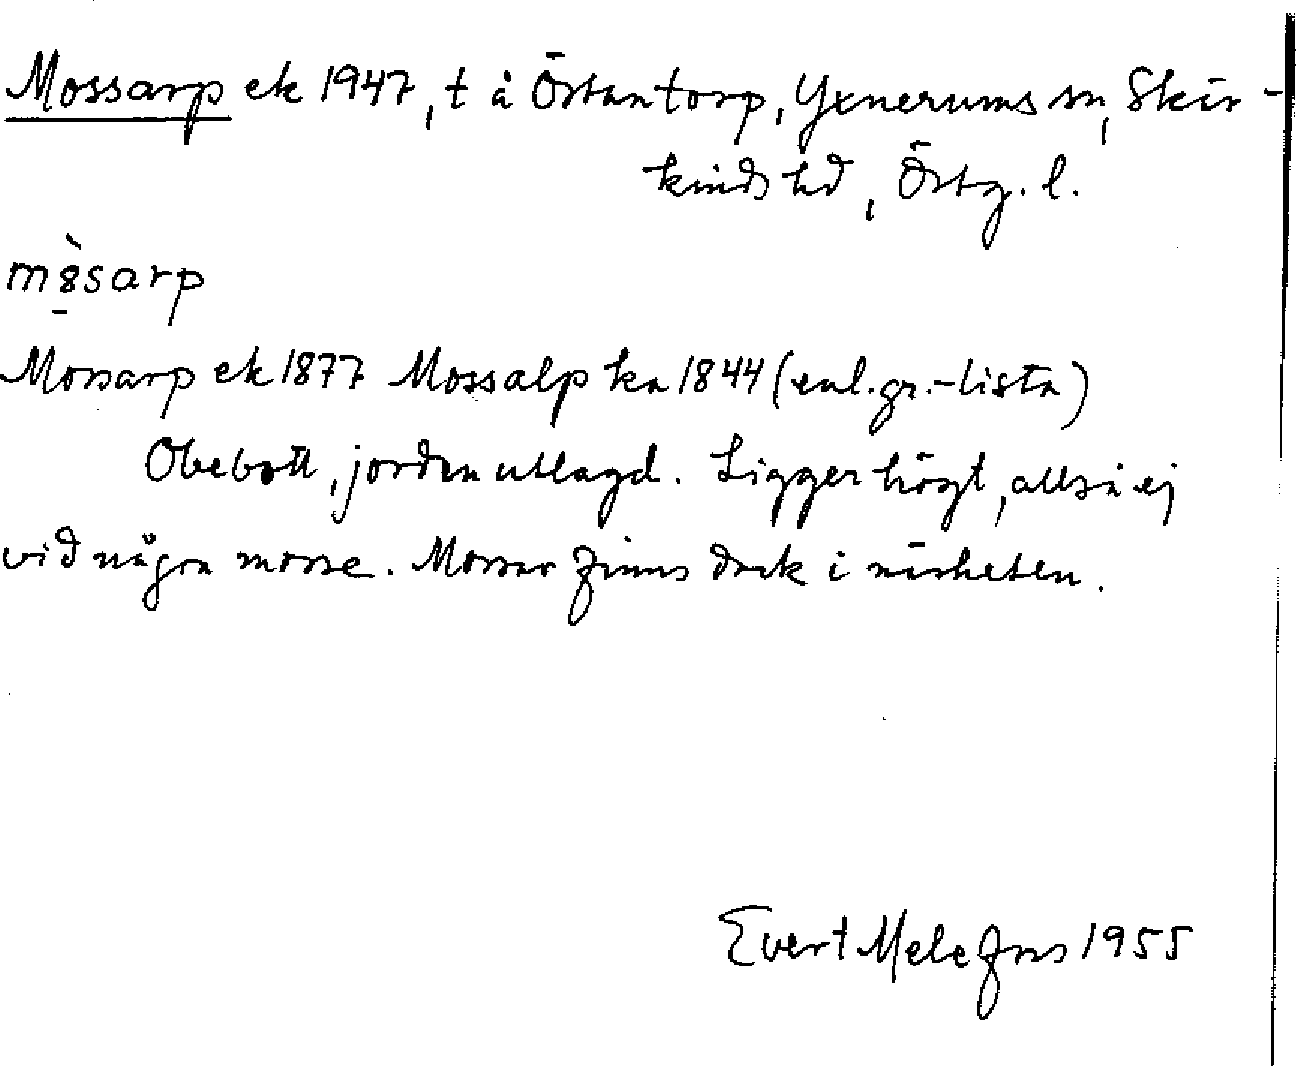 Mossarp ek 1947, t å Östantorp, Yxnerums sn, Skär-
kinds hd, Östg. l.
mọ̀sarp
Mossarp ek 1877 Mossalp ka 1844 (enl. gr.-lista)
Obebott, jorden utlagd. Ligger högt, alltså ej
vid några mosse. Mossar finns dock i närheten.
Evert Melefors 1955